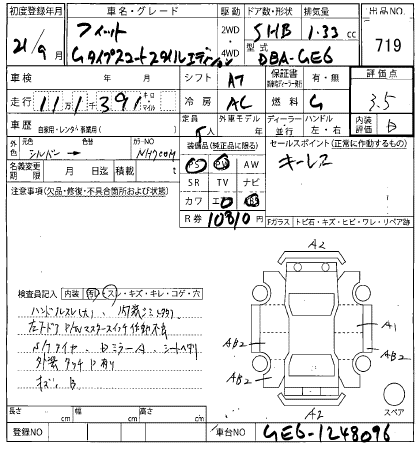 初度登録年月 車名・グレード 駆動 ドア数・形状 排気量 出品No.
21/9 月 フィット 2WD 4WD 5HB 1.33 cc 719
型式
Gタイプスマートスタイルエディション DBA-GE6
車検 年 月 シフト AT 保証書 有・無 評価点
走行 11万1千391 キロ マイル 冷房 AC 燃料 G 3.5
車歴 自家用・レンタ 定員 5人 外車モデル年 ディーラー 並行 ハンドル 左・右 内装評価 B
外色 元色 シルバー 色替 カラーNO NH700M
装備品(純正品に限る) セールスポイント(正常に作動するもの)
PS PW AW キーレス
名義変更期限 月 日迄 積載 t
SR TV ナビ
注意事項(欠品・修復・不具合箇所および状態)
カワ
R券 10810
Fガラス トビ石・キズ・ヒビ・ワレ・リペア跡
A2
検査員記入 内装 スレ・キズ・キレ・コゲ・穴
ハンドルスレ(大) 内装シミ
左フドア P/Wマスタースイッチ作動不良
A1
AB2
N/タイヤ、DミラーA、シートヘタリ
AB2
外装タッチP有り
AB2
キズ、B
A2
スペア
長さ cm 幅 cm 高さ cm
登録NO 車台NO GE6-1248096